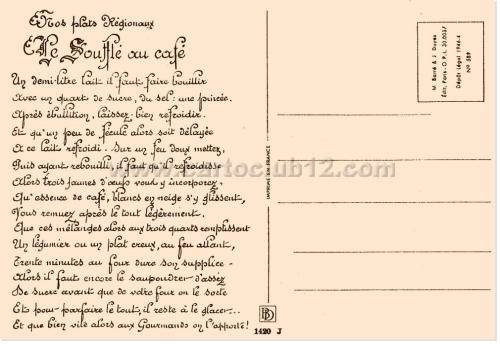 Nos plats Régionaux
Le Soufflé au café
Un demi-litre lait il faut faire bouillir
Avec un quart de sucre, du sel : une pincée.
Après ébullition, laissez-bien refroidir.
Et qu'un peu de fécule alors soit délayée
A ce lait refroidi. Sur un feu doux mettez,
Puis ayant rebouilli, il faut qu'il refroidisse
Alors trois jaunes d'œufs vous y incorporez,
Qu'essence de café, blancs en neige s'y glissent,
Vous remuez après le tout légèrement.
Que ces mélanges alors aux trois quarts remplissent
Un légumier ou un plat creux, au feu allant,
Trente minutes au four dure son supplice -
Alors il faut encore le saupoudrer d'assez
De sucre avant que de votre four on le sorte
Et pour parfaire le tout, il reste à le glacer...
Et que bien vite alors aux Gourmands on l'apporte!
M. Barré & J. Dayez
Édit. Paris - O.P.L. 30.0037
Dépôt légal 1946-4
No 589
IMPRIMÉ EN FRANCE
www.cartoclub12.com
BD
1420 J